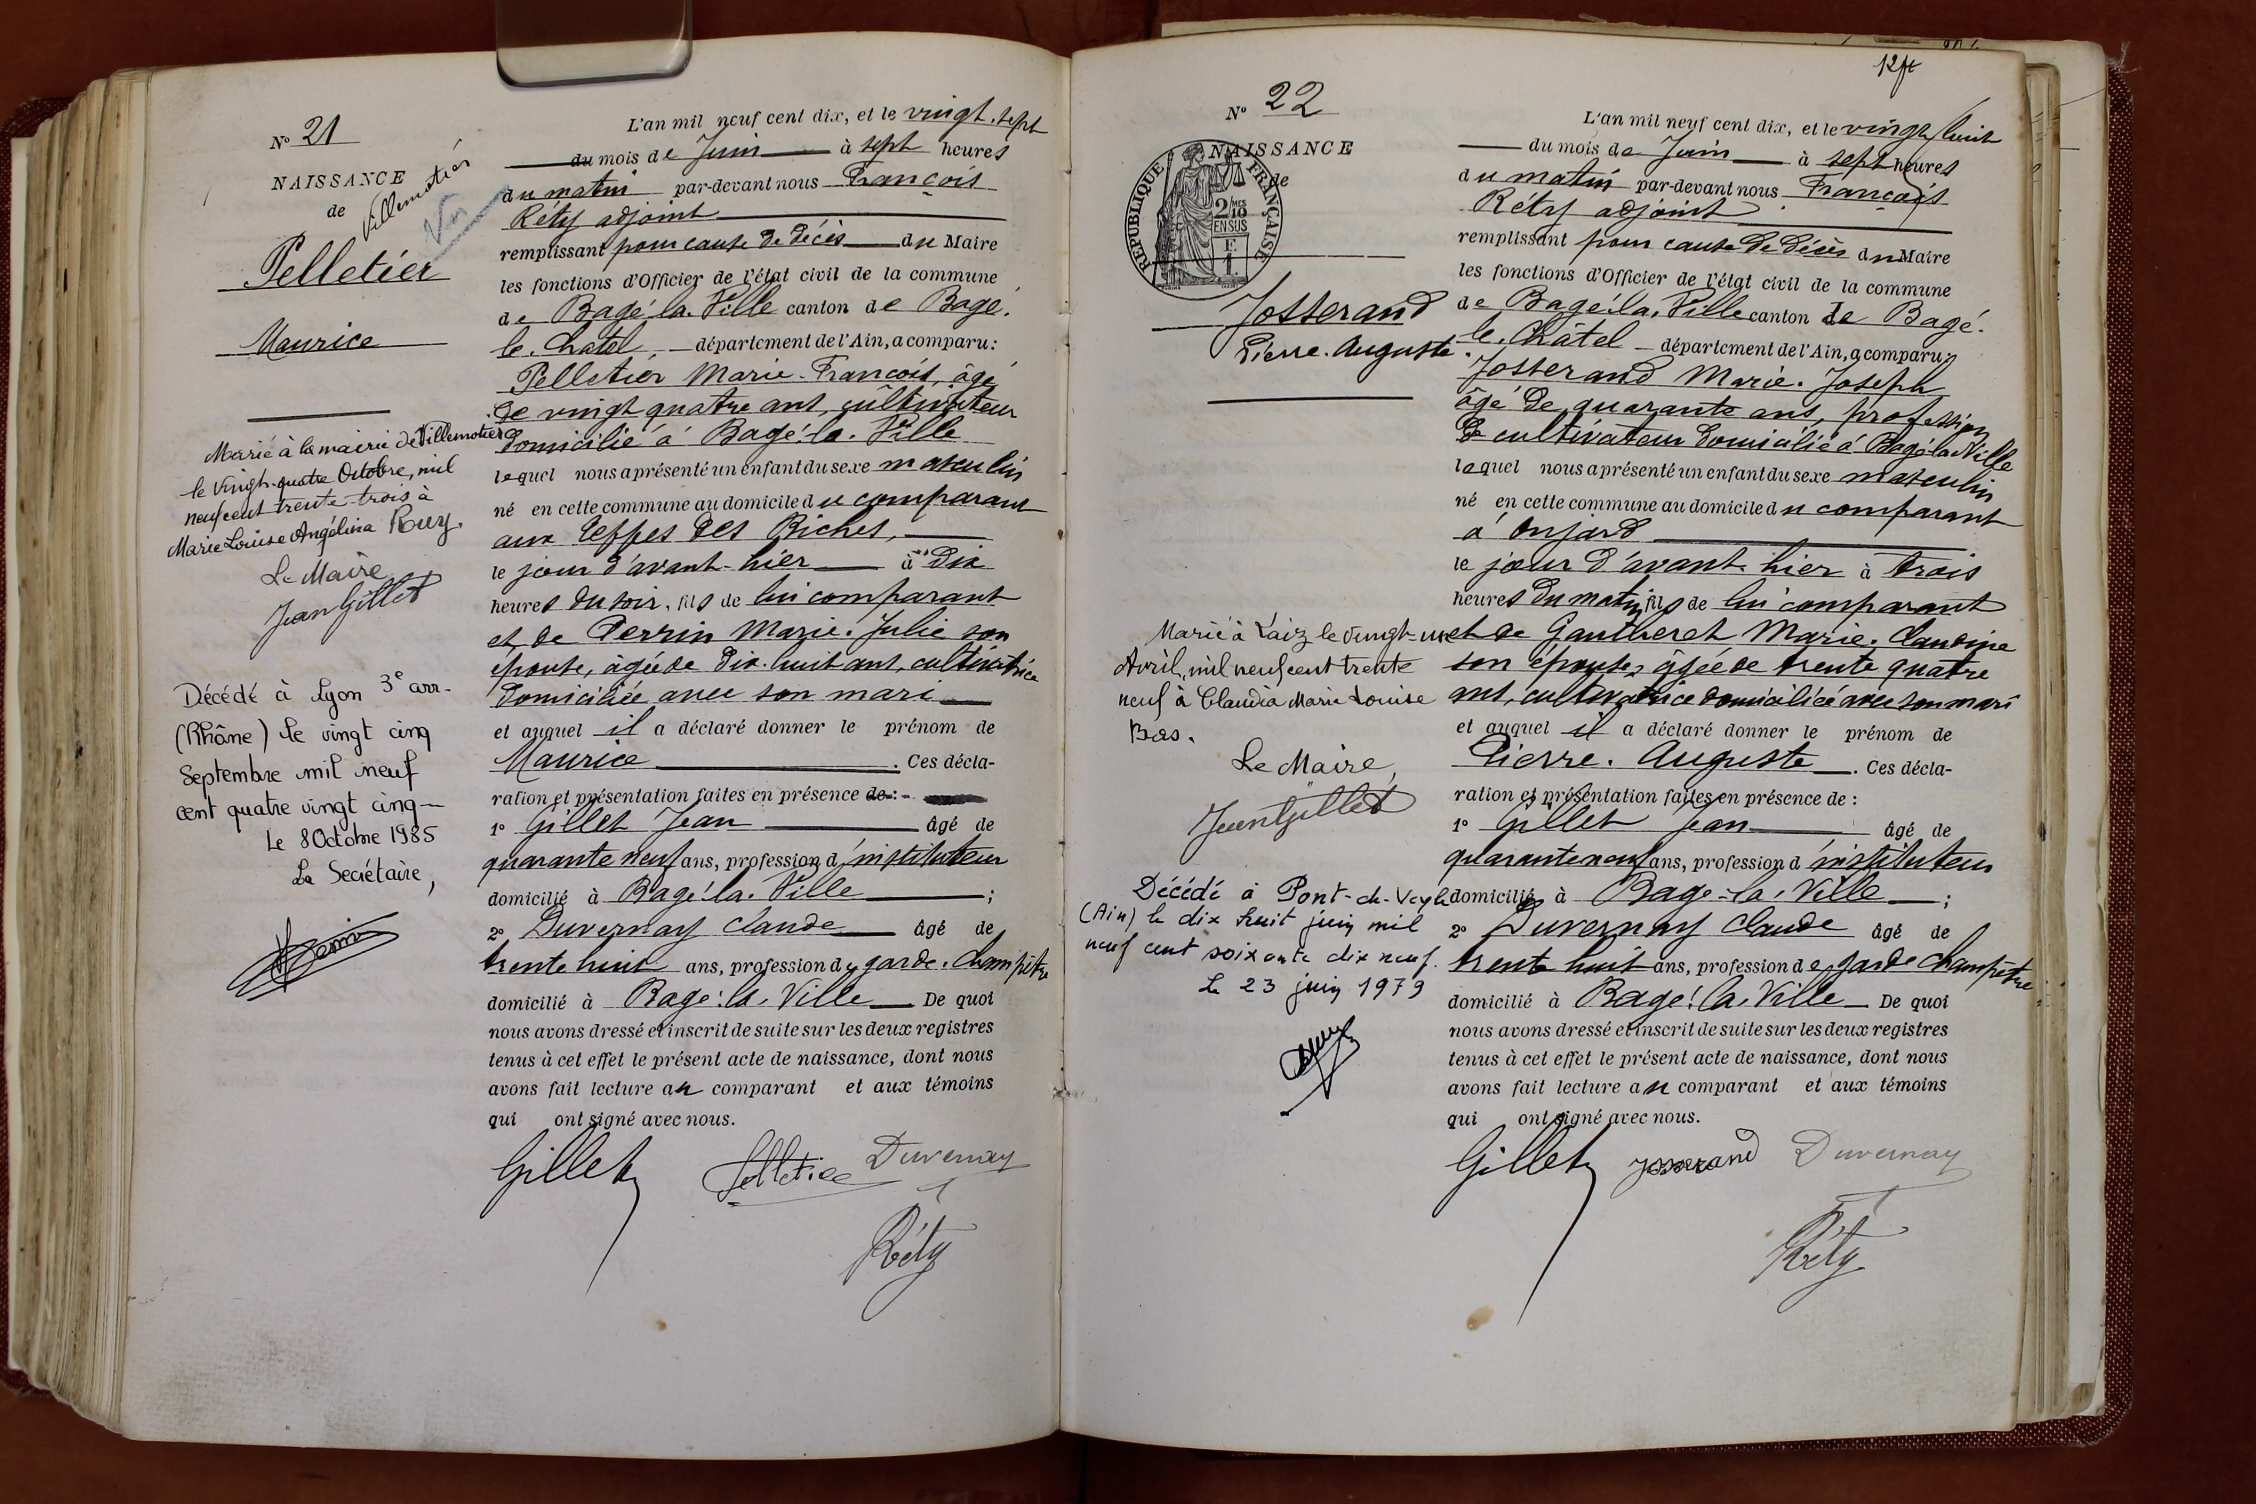 N° 21
NAISSANCE
de
Villemotier
Pelletier
Maurice
Marié à la mairie de Villemotier
le vingt-quatre Octobre, mil
neuf cent trente-trois à
Marie Louise Angélina Ruy.
Le Maire
Jean Gillet
Décédé à Lyon 3e arr-
(Rhône) le vingt cinq
Septembre mil neuf
cent quatre vingt cinq—
Le 8 Octobre 1985
La Secrétaire,
L'an mil neuf cent dix, et le vingt-sept
du mois de Juin à sept heures
du matin par-devant nous François
Réty adjoint
remplissant pour cause de décès du Maire
les fonctions d'Officier de l'état civil de la commune
de Bagé-la-Ville canton de Bagé-
le-Chatel, département de l'Ain, a comparu:
Pelletier Marie-François, âgé
de vingt quatre ans, cultivateur
domicilié à Bagé-la-Ville
lequel nous a présenté un enfant du sexe masculin
né en cette commune au domicile du comparant
aux Teppes des Biches,
le jour d'avant-hier à dix
heures du soir, fils de lui comparant
et de Perrin Marie-Julie son
épouse, âgée de dix-huit ans, cultivatrice
domiciliée avec son mari
et auquel il a déclaré donner le prénom de
Maurice. Ces décla-
ration et présentation faites en présence de:
1° Gillet Jean âgé de
quarante neuf ans, profession d'instituteur
domicilié à Bagé-la-Ville;
2° Duvernay Claude âgé de
trente huit ans, profession de garde-champêtre
domicilié à Bagé-la-Ville De quoi
nous avons dressé et inscrit de suite sur les deux registres
tenus à cet effet le présent acte de naissance, dont nous
avons fait lecture au comparant et aux témoins
qui ont signé avec nous.
Gillet Pelletier Duvernay
Réty
12 ft
N° 22
NAISSANCE
de
RÉPUBLIQUE FRANÇAISE
2/10 MES
EN SUS
F.
1.
Josserand
Pierre-Auguste.
Marié à Laiz le vingt-un
Avril, mil neuf cent trente
neuf à Claudia Marie Louise
Bas.
Le Maire,
Jean Gillet
Décédé à Pont-de-Veyle
(Ain) le dix huit juin mil
neuf cent soixante dix neuf.
Le 23 juin 1979
L'an mil neuf cent dix, et le vingt huit
du mois de Juin à sept heures
du matin par-devant nous François
Réty adjoint
remplissant pour cause de décès du Maire
les fonctions d'Officier de l'état civil de la commune
de Bagé-la-Ville canton de Bagé-
le-Châtel département de l'Ain, a comparu:
Josserand Marie-Joseph
âgé de quarante ans, profession
de cultivateur domicilié à Bagé-la-Ville
lequel nous a présenté un enfant du sexe masculin
né en cette commune au domicile du comparant
à Onjard
le jour d'avant-hier à trois
heures du matin, fils de lui comparant
et de Gautheret Marie-Claudine
son épouse, âgée de trente quatre
ans, cultivatrice domiciliée avec son mari
et auquel il a déclaré donner le prénom de
Pierre-Auguste. Ces décla-
ration et présentation faites en présence de:
1° Gillet Jean âgé de
quarante neuf ans, profession d'instituteur
domicilié à Bagé-la-Ville;
2° Duvernay Claude âgé de
trente huit ans, profession de garde champêtre
domicilié à Bagé-la-Ville De quoi
nous avons dressé et inscrit de suite sur les deux registres
tenus à cet effet le présent acte de naissance, dont nous
avons fait lecture au comparant et aux témoins
qui ont signé avec nous.
Gillet Josserand Duvernay
Réty